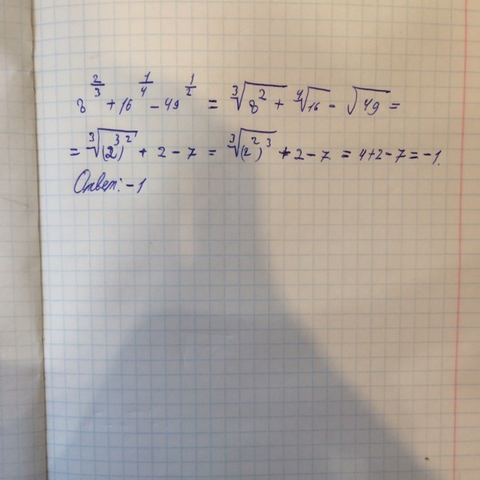 8^{\frac{2}{3}} + 16^{\frac{1}{4}} - 49^{\frac{1}{2}} = \sqrt[3]{8^2} + \sqrt[4]{16} - \sqrt{49} =
= \sqrt[3]{(2^3)^2} + 2 - 7 = \sqrt[3]{(2^2)^3} + 2 - 7 = 4 + 2 - 7 = -1.
Ответ: -1